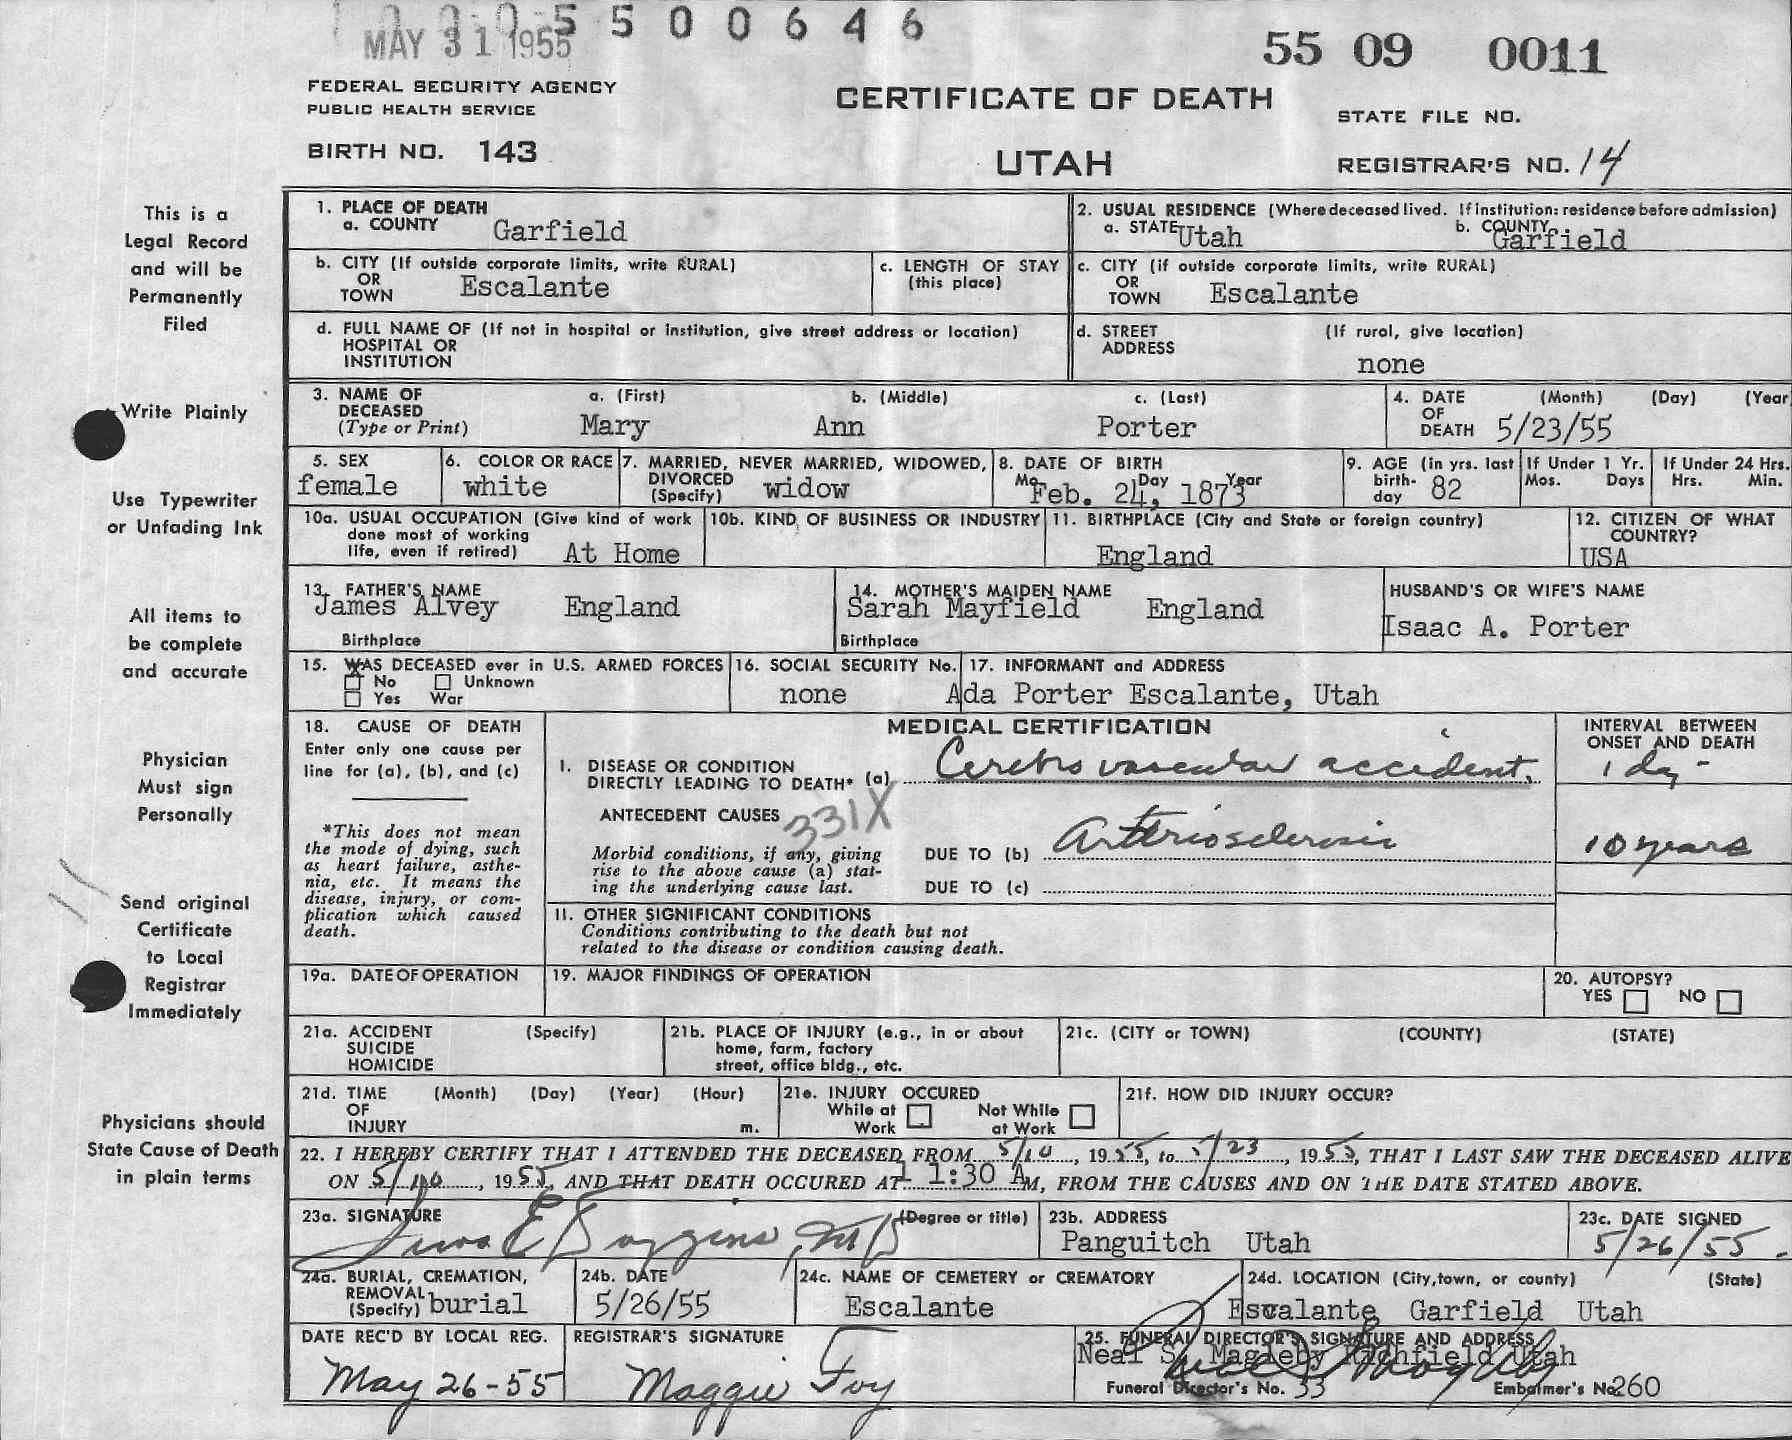 5500646
MAY 31 1955
55 09 0011
FEDERAL SECURITY AGENCY
PUBLIC HEALTH SERVICE
CERTIFICATE OF DEATH
STATE FILE NO.
BIRTH NO. 143
UTAH
REGISTRAR'S NO. 14
This is a
Legal Record
and will be
Permanently
Filed
Write Plainly
Use Typewriter
or Unfading Ink
All items to
be complete
and accurate
Physician
Must sign
Personally
Send original
Certificate
to Local
Registrar
Immediately
Physicians should
State Cause of Death
in plain terms
1. PLACE OF DEATH
a. COUNTY Garfield
2. USUAL RESIDENCE (Where deceased lived. If institution: residence before admission)
a. STATE Utah b. COUNTY Garfield
b. CITY (If outside corporate limits, write RURAL)
OR
TOWN Escalante
c. LENGTH OF STAY
(this place)
c. CITY (if outside corporate limits, write RURAL)
OR
TOWN Escalante
d. FULL NAME OF (If not in hospital or institution, give street address or location)
HOSPITAL OR
INSTITUTION
d. STREET (If rural, give location)
ADDRESS
none
3. NAME OF a. (First) b. (Middle) c. (Last)
DECEASED
(Type or Print) Mary Ann Porter
4. DATE (Month) (Day) (Year
OF
DEATH 5/23/55
5. SEX
female
6. COLOR OR RACE
white
7. MARRIED, NEVER MARRIED, WIDOWED,
DIVORCED
(Specify) widow
8. DATE OF BIRTH
Mo. Day Year
Feb. 24, 1873
9. AGE (in yrs. last
birth-
day 82
If Under 1 Yr.
Mos. Days
If Under 24 Hrs.
Hrs. Min.
10a. USUAL OCCUPATION (Give kind of work
done most of working
life, even if retired) At Home
10b. KIND OF BUSINESS OR INDUSTRY
11. BIRTHPLACE (City and State or foreign country)
England
12. CITIZEN OF WHAT
COUNTRY?
USA
13. FATHER'S NAME
James Alvey England
Birthplace
14. MOTHER'S MAIDEN NAME
Sarah Mayfield England
Birthplace
HUSBAND'S OR WIFE'S NAME
Isaac A. Porter
15. WAS DECEASED ever in U.S. ARMED FORCES
No Unknown
Yes War
16. SOCIAL SECURITY No.
none
17. INFORMANT and ADDRESS
Ada Porter Escalante, Utah
18. CAUSE OF DEATH
Enter only one cause per
line for (a), (b), and (c)
*This does not mean
the mode of dying, such
as heart failure, asthe-
nia, etc. It means the
disease, injury, or com-
plication which caused
death.
MEDICAL CERTIFICATION
I. DISEASE OR CONDITION
DIRECTLY LEADING TO DEATH* (a) Cerebro vascular accident.
ANTECEDENT CAUSES
331X
Morbid conditions, if any, giving
rise to the above cause (a) stat-
ing the underlying cause last.
DUE TO (b) Arteriosclerosis
DUE TO (c)
INTERVAL BETWEEN
ONSET AND DEATH
1 day
10 years
II. OTHER SIGNIFICANT CONDITIONS
Conditions contributing to the death but not
related to the disease or condition causing death.
19a. DATE OF OPERATION
19. MAJOR FINDINGS OF OPERATION
20. AUTOPSY?
YES NO
21a. ACCIDENT (Specify)
SUICIDE
HOMICIDE
21b. PLACE OF INJURY (e.g., in or about
home, farm, factory
street, office bldg., etc.
21c. (CITY or TOWN) (COUNTY) (STATE)
21d. TIME (Month) (Day) (Year) (Hour)
OF
INJURY m.
21e. INJURY OCCURED
While at Not While
Work at Work
21f. HOW DID INJURY OCCUR?
22. I HEREBY CERTIFY THAT I ATTENDED THE DECEASED FROM 5/10, 1955, to 5/23, 1955, THAT I LAST SAW THE DECEASED ALIVE
ON 5/10, 1955, AND THAT DEATH OCCURED AT 11:30 A M, FROM THE CAUSES AND ON THE DATE STATED ABOVE.
23a. SIGNATURE (Degree or title)
23b. ADDRESS
Panguitch Utah
23c. DATE SIGNED
5/26/55.
24a. BURIAL, CREMATION,
REMOVAL
(Specify) burial
24b. DATE
5/26/55
24c. NAME OF CEMETERY or CREMATORY
Escalante
24d. LOCATION (City, town, or county) (State)
Escalante Garfield Utah
DATE REC'D BY LOCAL REG.
May 26-55
REGISTRAR'S SIGNATURE
Maggie Foy
25. FUNERAL DIRECTOR'S SIGNATURE AND ADDRESS
Neal S. Magleby Richfield Utah
Funeral Director's No. 33 Embalmer's No. 260